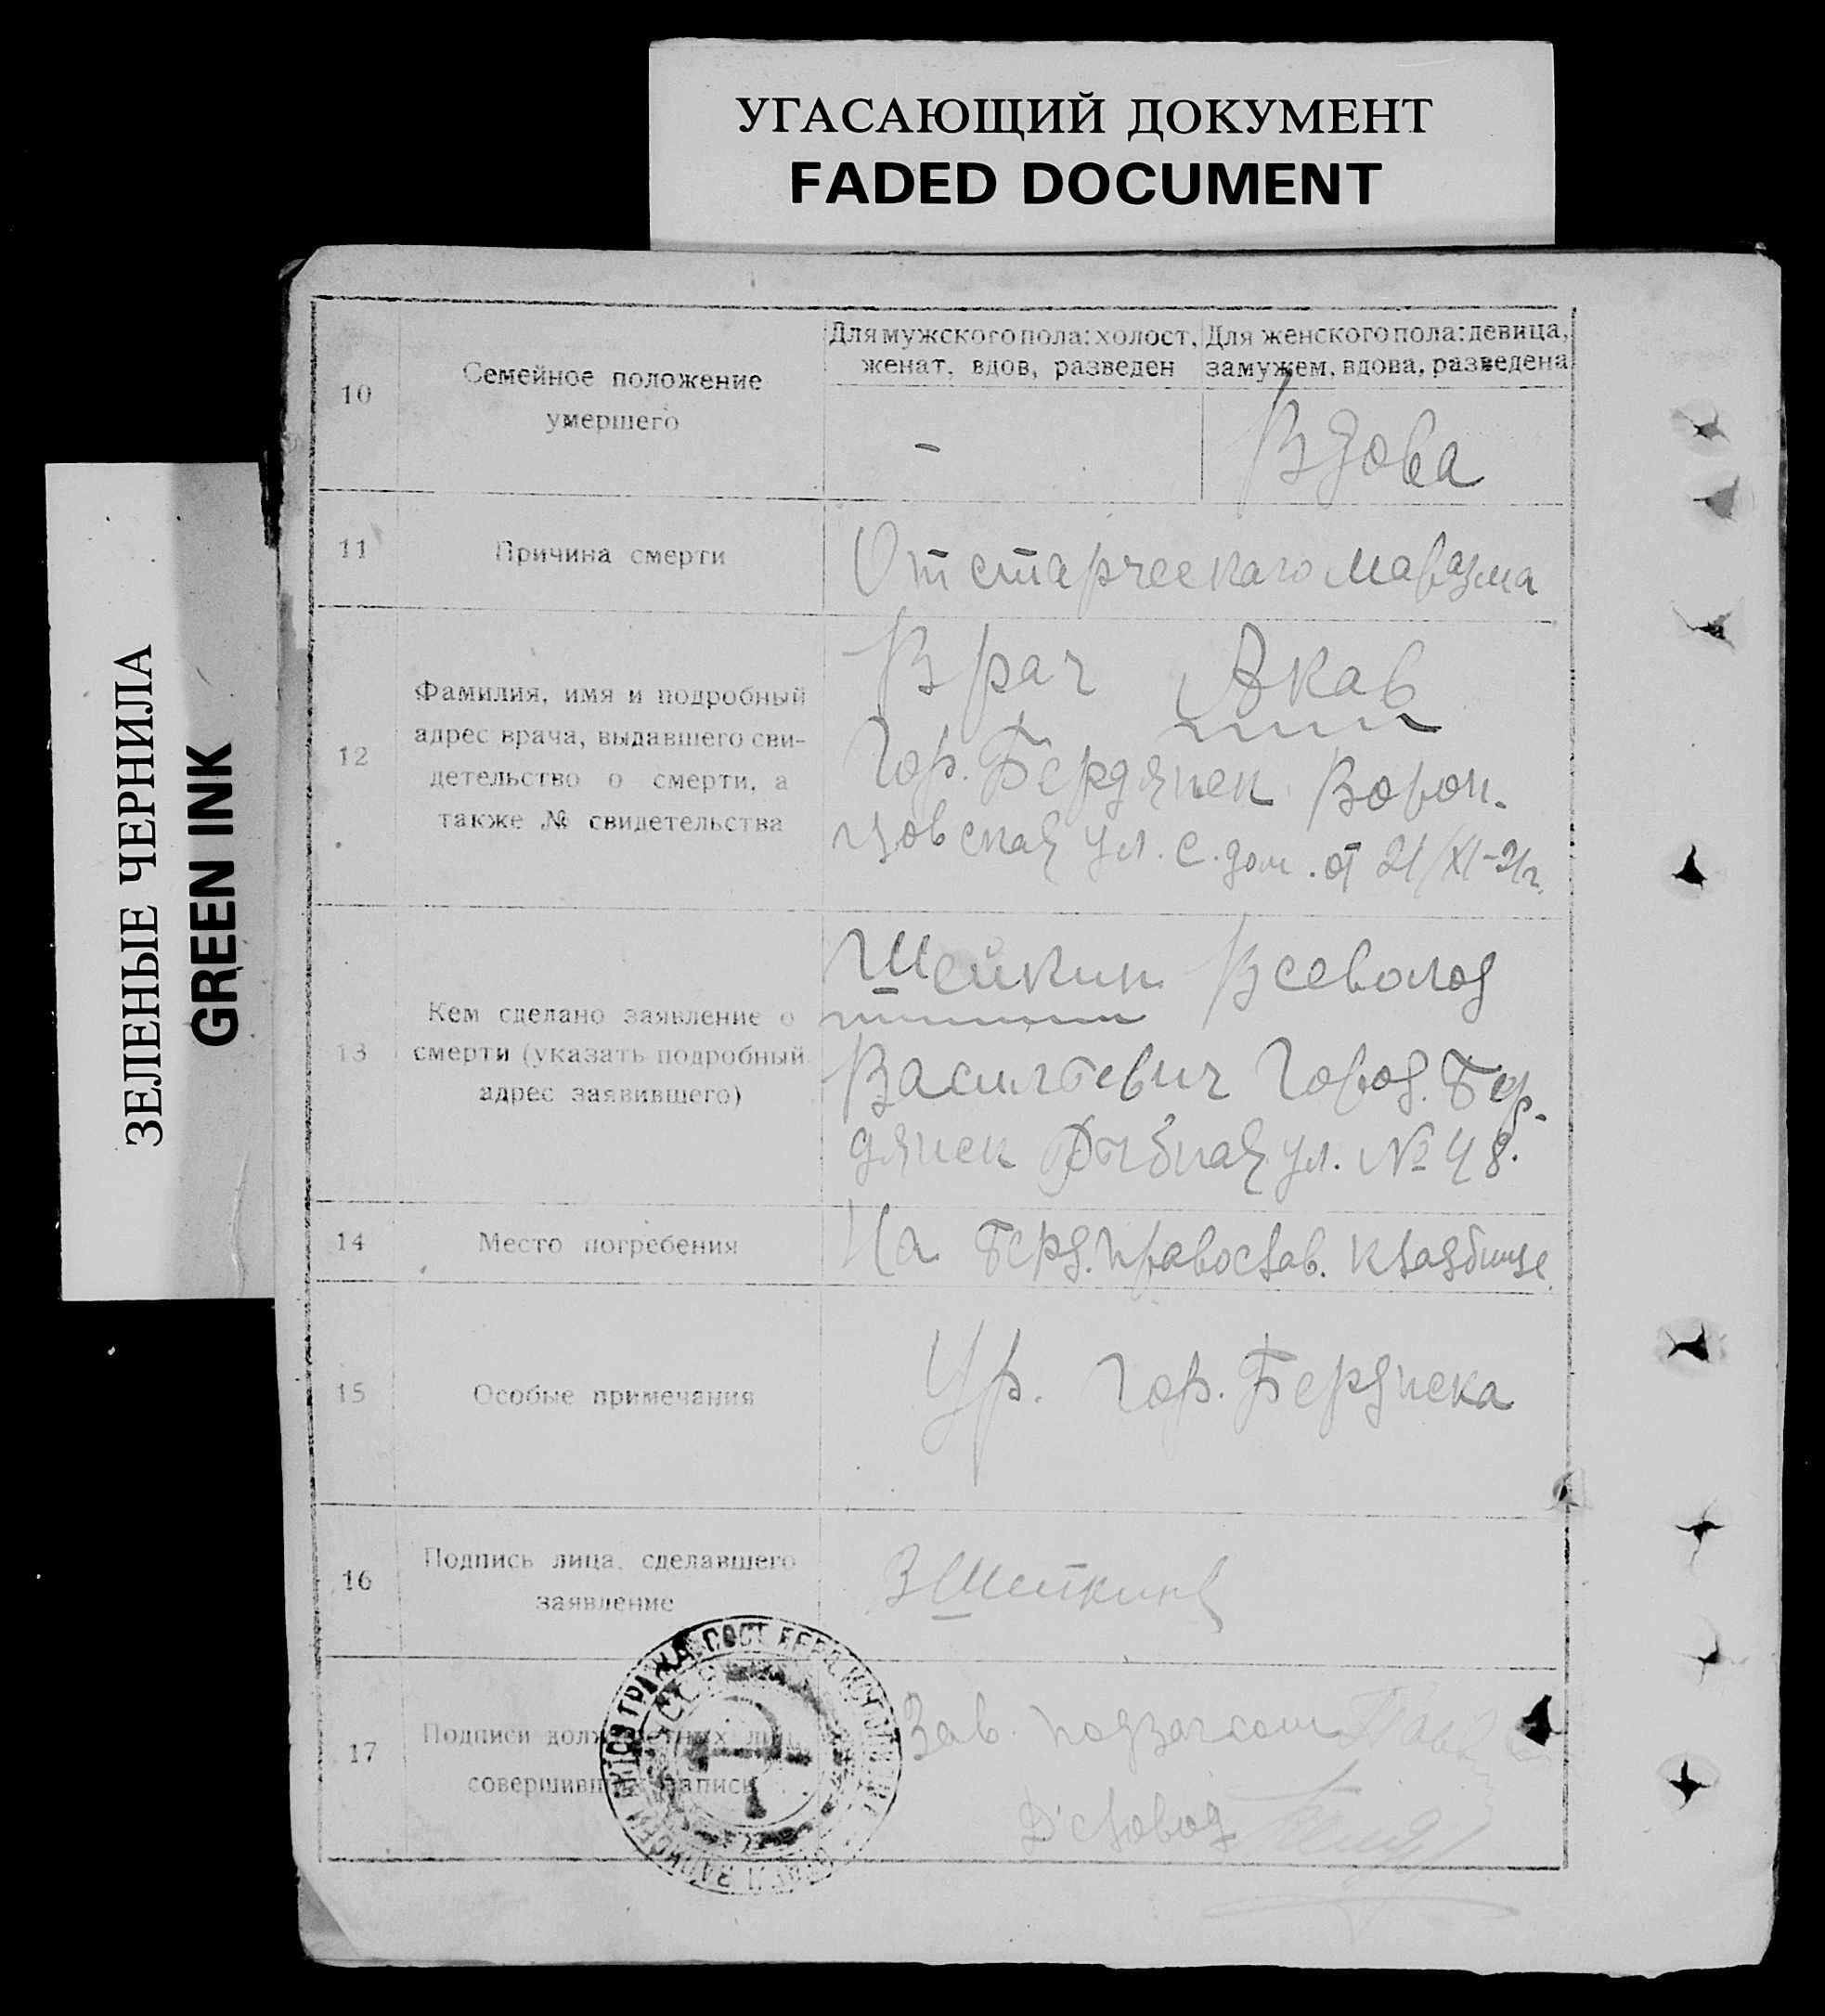 УГАСАЮЩИЙ ДОКУМЕНТ
FADED DOCUMENT
ЗЕЛЕНЫЕ ЧЕРНИЛА
GREEN INK
10
Семейное положение
умершего
Для мужского пола: холост,
женат, вдов, разведен
Для женского пола: девица,
замужем, вдова, разведена
-
Вдова
11
Причина смерти
От старческаго маразма
12
Фамилия, имя и подробный
адрес врача, выдавшего сви-
детельство о смерти, а
также № свидетельства
Врач Акав
Гор. Бердянск Ворон-
цовская ул. с. дом. от 21/XI-21г.
13
Кем сделано заявление о
смерти (указать подробный
адрес заявившего)
Шейкин Всеволод
Васильевич Город. Бер-
дянск Рыбная ул. № 48.
14
Место погребения
На Берд. православ. кладбище
15
Особые примечания
Ур. гор. Бердянска
16
Подпись лица, сделавшего
заявление
ВШейкинъ
17
Подписи должностных лиц,
совершивших запись
Зав. подзагсом
Деловод